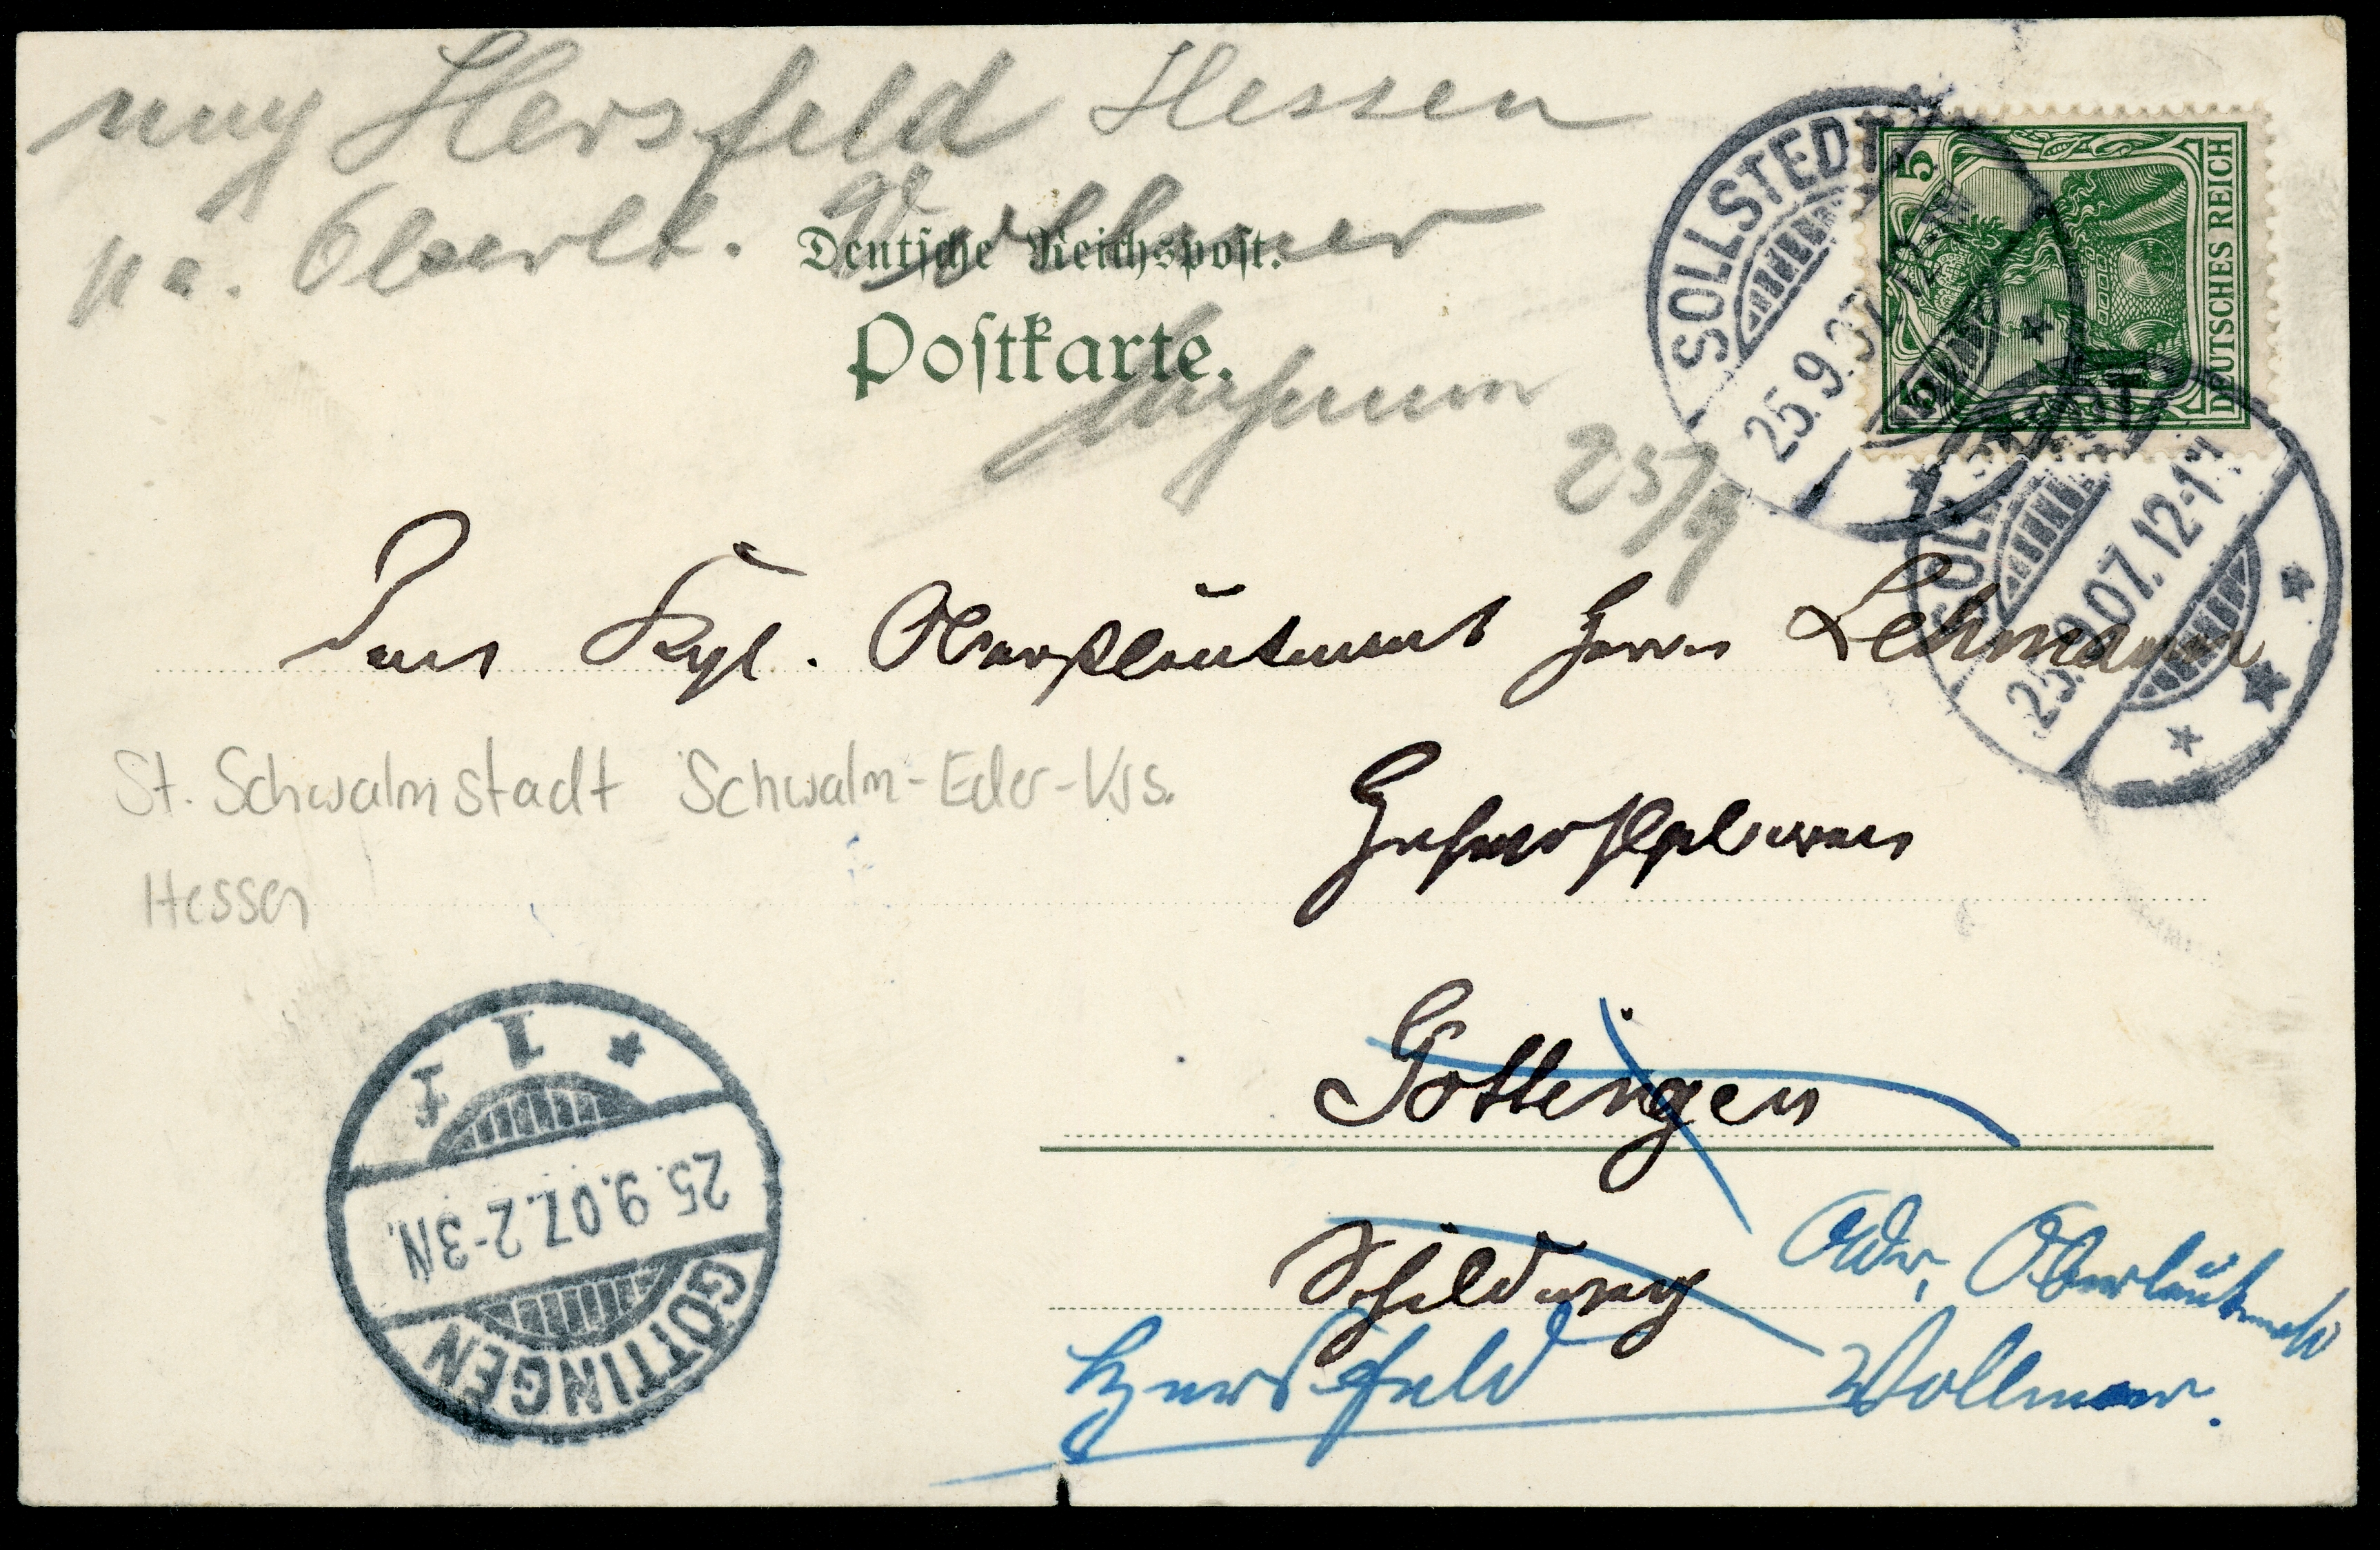 nach Hersfeld Hessen
pr. a. Oberlt. Vollmer
Deutsche Reichspost.
Postkarte.
25/9
SOLLSTEDT
25.9.07. 12-1N
5
5
DEUTSCHES REICH
SOLLSTEDT
25.9.07. 12-1N
Dem Kgl. Oberstleutnant Herrn Lehmann
St. Schwalmstadt Schwalm-Eder-Krs.
Hessen
Göttingen
Adr. Oberleutnant
Hersfeld Vollmer.
GÖTTINGEN
25.9.07. 2-3N.
* 1 f